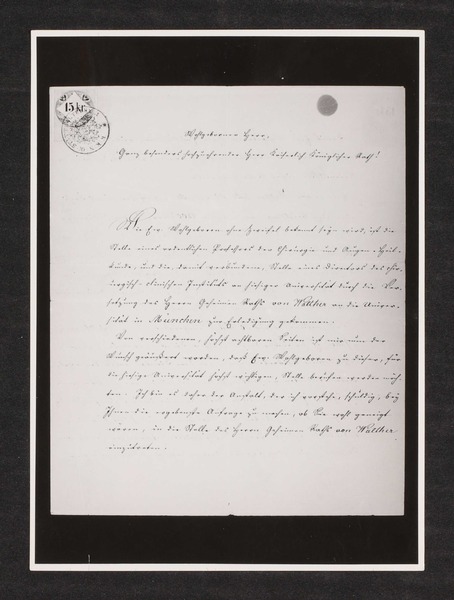 15 kr.
Wohlgeborner Herr,
Ganz besonders hochzuehrender Herr Kaiserlich Königlicher Rath!
Wie Ew. Wohlgeboren ohne Zweifel bekannt seyn wird, ist die
Stelle eines ordentlichen Professors der Chirurgie und Augen-Heil-
kunde, und die, damit verbundene, Stelle eines Directors des chir-
urgisch-clinischen Instituts an hiesiger Universität durch die Ver-
setzung des Herrn Geheimen Raths von Walther an die Univer-
sität in München zur Erledigung gekommen.
Von verschiedenen, höchst achtbaren Seiten ist mir nun der
Wunsch geäußert worden, daß Ew. Wohlgeboren zu dieser, für
die hiesige Universität höchst wichtigen, Stelle berufen werden möch-
ten. Ich bin es daher der Anstalt, der ich vorstehe, schuldig, bey
Ihnen die ergebenste Anfrage zu machen, ob Sie wohl geneigt
wären, in die Stelle des Herrn Geheimen Raths von Walther
einzutreten.